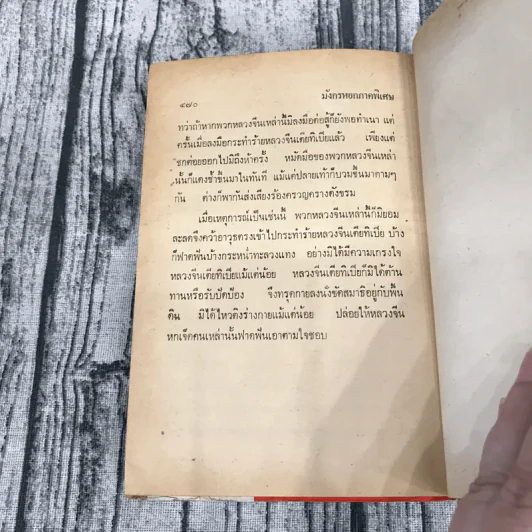 ๔๗๐
มังกรหยกภาคพิเศษ
ทว่าถ้าหากพวกหลวงจีนเหล่านี้มิลงมือต่อสู้ก็ยังพอทำเนา แต่
ครั้นเมื่อลงมือกระทำร้ายหลวงจีนเตียทิเบียแล้ว เพียงแต่
ชกต่อยออกไปมิถึงห้าครั้ง หมัดมือของพวกหลวงจีนเหล่า
นั้นก็แดงช้ำขึ้นมาในทันที แม้แต่ปลายเท้าก็บวมขึ้นมาตามๆ
กัน ต่างก็พากันส่งเสียงร้องครวญครางดังขรม
เมื่อเหตุการณ์เป็นเช่นนี้ พวกหลวงจีนเหล่านั้นก็มิยอม
ละลดจึงคว้าอาวุธตรงเข้าไปกระทำร้ายหลวงจีนเตียทิเบีย บ้าง
ก็ฟาดฟันบ้างกระหน่ำทะลวงแทง อย่างมิได้มีความเกรงใจ
หลวงจีนเตียทิเบียแม้แต่น้อย หลวงจีนเตียทิเบียก็มิได้ต้าน
ทานหรือรับปัดป้อง จึงทรุดกายลงนั่งขัดสมาธิอยู่กับพื้น
ดิน มิได้ไหวติงร่างกายแม้แต่น้อย ปล่อยให้หลวงจีน
หกเจ็ดคนเหล่านั้นฟาดฟันเอาตามใจชอบ